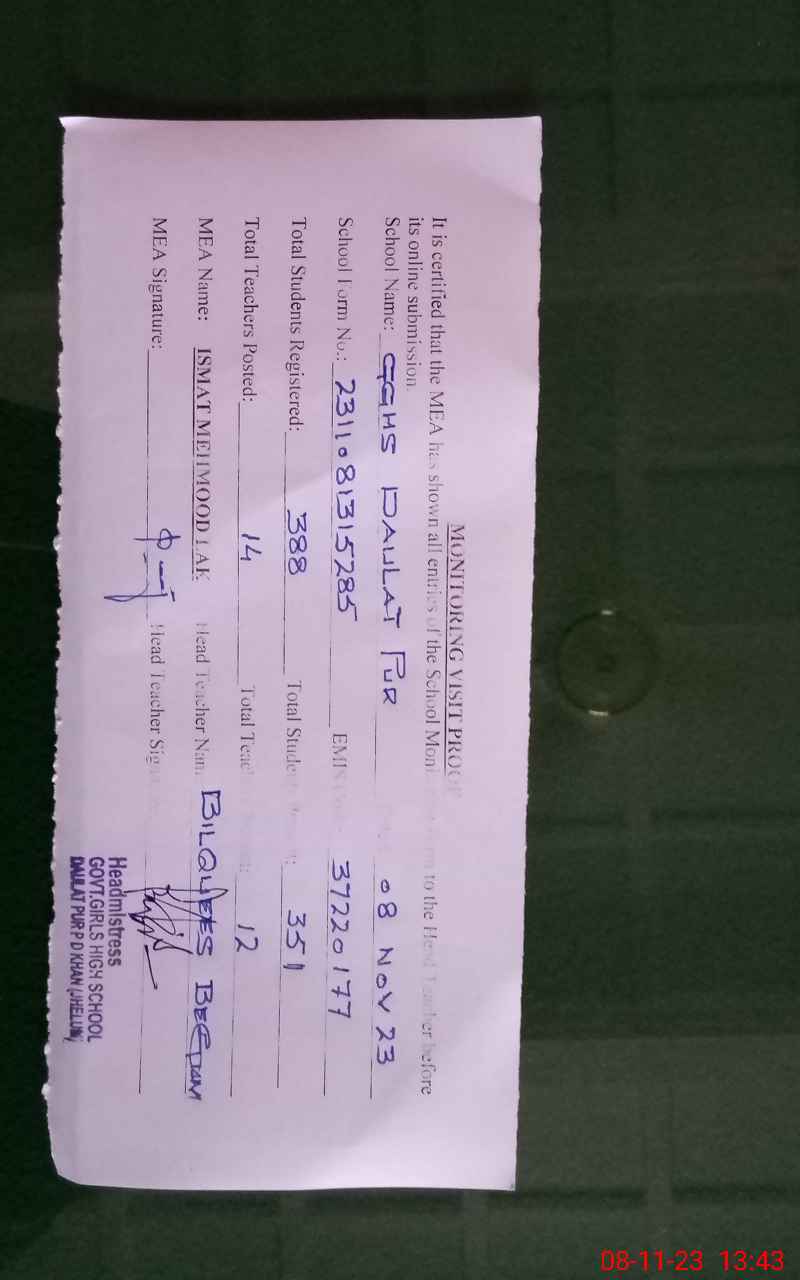 MONITORING VISIT PROOF
It is certified that the MEA has shown all entries of the School Moni to the Head Teacher before
its online submission.
School Name: GGHS DAULAT PUR 08 NOV 23
School Form No.: 2311081315285 EMIS 37220177
Total Students Registered: 388 Total Student 351
Total Teachers Posted: 14 Total 12
MEA Name: ISMAT MEHMOOD LAK Head Teacher Nam BILQUEES BEGUM
MEA Signature: Head Teacher Sig
Headmistress
GOVT.GIRLS HIGH SCHOOL
DAULAT PUR P D KHAN (JHELUM)
08-11-23 13:43